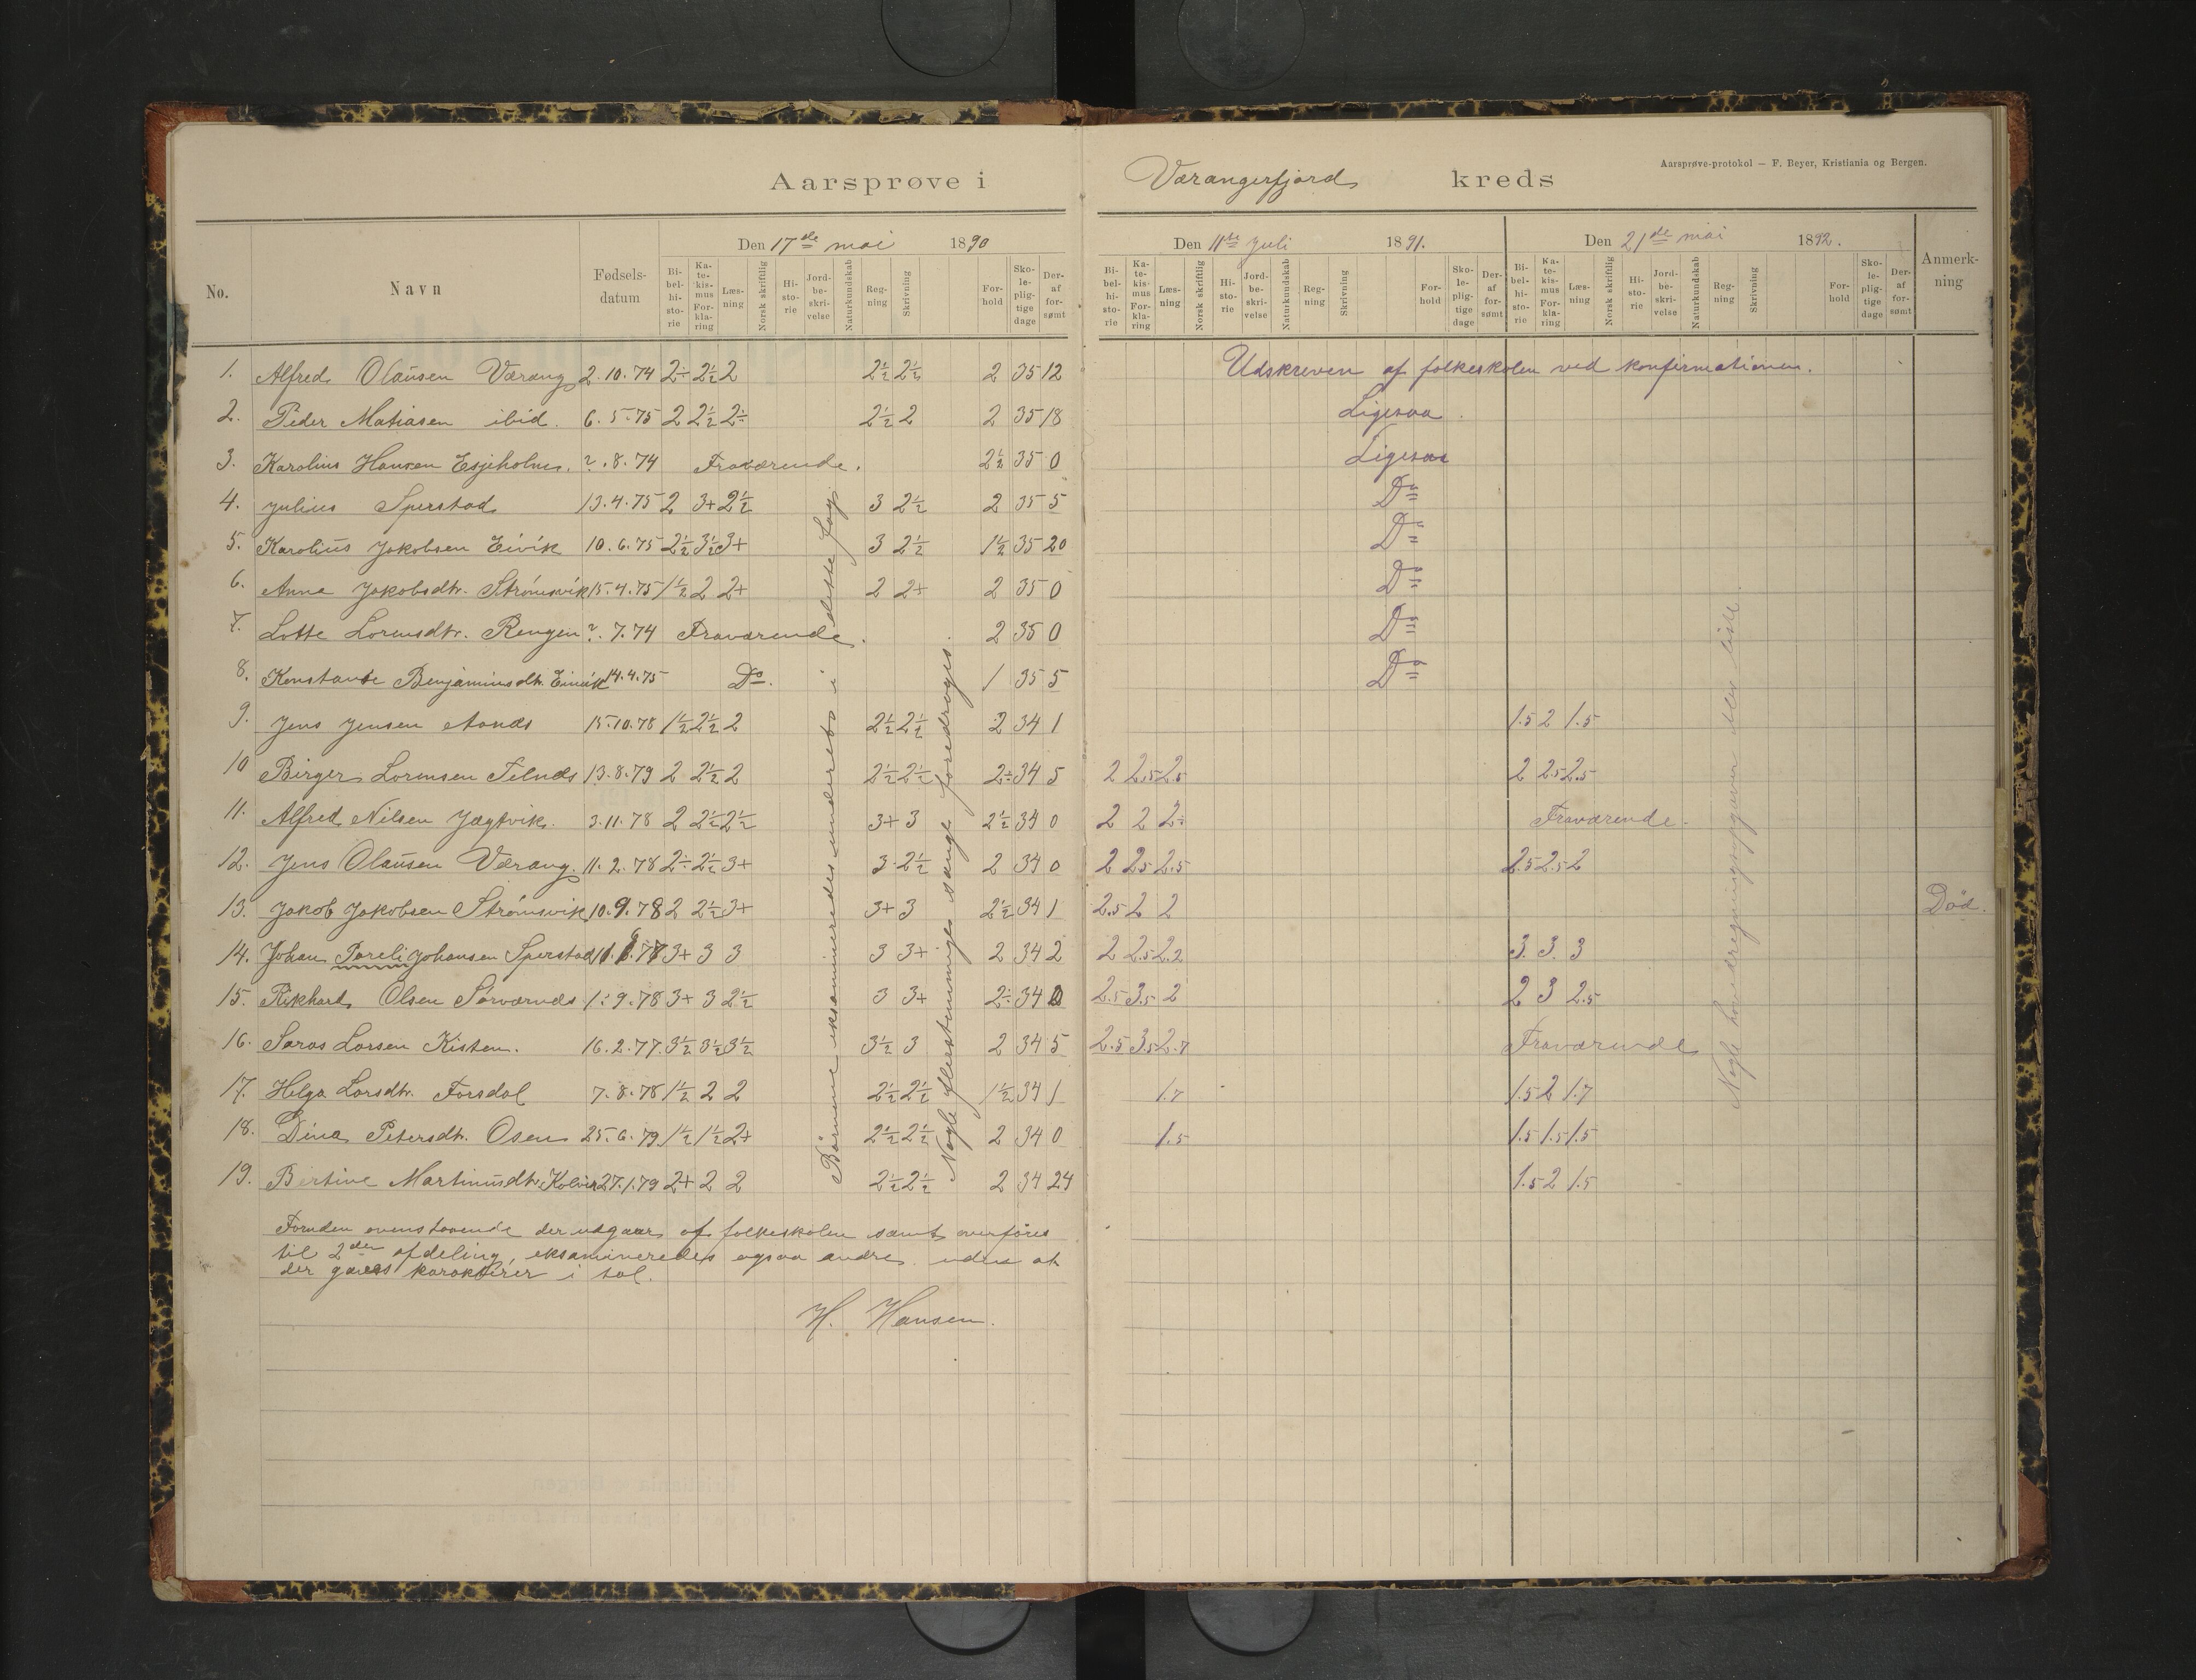 Aarsprøve i Værangerfjord kreds
Aarsprøve-protokol — F. Beyer, Kristiania og Bergen.
No. Navn Fødsels-datum Den 17de mai 1890 Den 11te juli 1891. Den 21de mai 1892. Anmerk-ning
Bi-bel-hi-sto-rie Ka-te-kis-mus For-kla-ring Læs-ning Norsk skriftlig Hi-sto-rie Jord-be-skri-velse Naturkundskab Reg-ning Skrivning For-hold Sko-le-plig-tige dage Der-af for-sømt
Bi-bel-hi-sto-rie Ka-te-kis-mus For-kla-ring Læs-ning Norsk skriftlig Hi-sto-rie Jord-be-skri-velse Naturkundskab Reg-ning Skrivning For-hold Sko-le-plig-tige dage Der-af for-sømt
Bi-bel-hi-sto-rie Ka-te-kis-mus For-kla-ring Læs-ning Norsk skriftlig Hi-sto-rie Jord-be-skri-velse Naturkundskab Reg-ning Skrivning For-hold Sko-le-plig-tige dage Der-af for-sømt
1. Alfred Olausen Værang 2.10.74 2÷ 2½ 2 2½ 2½ 2 35 12 Udskreven af folkeskolen ved konfirmationen.
2. Peder Matiasen ibid. 6.5.75 2 2½ 2÷ 2½ 2 2 35 18 Ligesaa.
3. Karolius Hansen Esjeholm. ?.8.74 Fraværende. 2½ 35 0 Ligesaa
4. Julius Sperstad 13.4.75 2 3+ 2½ 3 2½ 2 35 5 Do
5. Karolius Jakobsen Eivik 10.6.75 2½ 3½ 3+ 3 2½ 1½ 35 20 Do
6. Anna Jakobsdtr. Strömsvik 15.4.75 1½ 2 2+ 2 2+ 2 35 0 Do
7. Lotte Lorensdtr. Rengen ?.7.74 Fraværende. 2 35 0 Do
8. Konstanse Benjaminsdtr. Eivik 14.4.75 Do. 1 35 5 Do
9. Jens Jensen 15.10.78 1½ 2½ 2 2½ 2½ 2 34 1 1.5 2 1.5
10 Birger Lorensen 13.8.79 2 2½ 2 2½ 2½ 2÷ 34 5 2 2.5 2.5 2 2.5 2.5
11. Alfred Nilsen Jægtvik. 3.11.78 2 2½ 2½ 3+ 3 2½ 34 0 2 2 2÷ Fraværende.
12. Jens Olausen Værang. 11.2.78 2÷ 2½ 3+ 3 2½ 2 34 0 2 2.5 2.5 2.5 2.5 2
13. Jakob Jakobsen Strömsvik 10.9.78 2 2½ 3+ 3+ 3 2½ 34 1 2.5 2 2 Død.
14. Johan Pareli Johansen Sperstad 3+ 3 3 3 3+ 2 34 2 2 2.5 2.2 3. 3. 3
15. Rikhard Olsen Sørværnes 1.9.78 3+ 3 2½ 3 3+ 2÷ 34 0 2.5 3.5 2 2 3 2.5
16. Saras Larsen Kisten. 16.2.77. 3½ 3½ 3½ 3½ 3 2 34 5 2.5 3.5 2.7 Fraværende
17. Helga Larsdtr. Forsdal 7.8.78 1½ 2 2 2½ 2½ 1½ 34 1 1.7 1.5 2 1.7
18. Dina Petersdtr. Osen 25.6.79 1½ 1½ 2+ 2½ 2½ 2 34 0 1.5 1.5 1.5 1.5
19. Bertine Martinusdtr. Kolvik 27.1.79 2+ 2 2 2½ 2½ 2 34 24 1.5 2 1.5
Börnene eksamineredes mundtlig i dette fag
Nogle flerstemmige sange foredroges.
Nogle hovedregningsopgaver blev
Foruden ovenstaaende der udgaar af folkeskolen samt overføres
til 2den afdeling, eksamineredes ogsaa andre uden at
der gaves karakterer i tal.
H. Hansen.